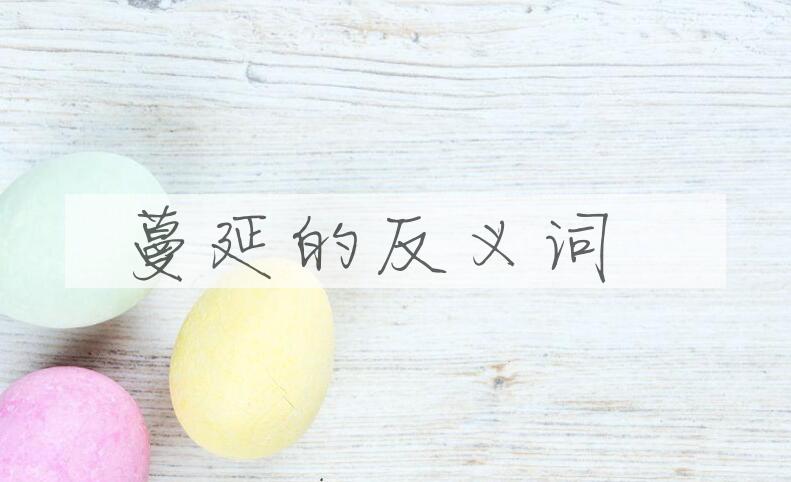 蔓延的反义词